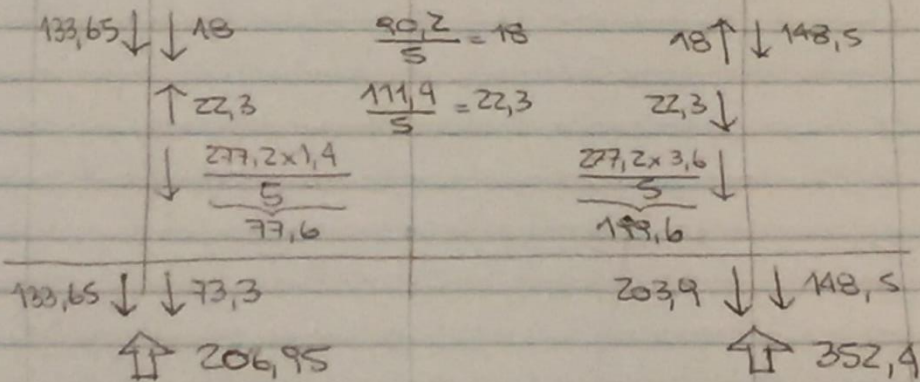 133,65↓ ↓18 90,2/5 = 18 18↑ ↓148,5
↑22,3 111,4/5 = 22,3 22,3↓
↓ 277,2x1,4/5 277,2x3,6/5 ↓
77,6 199,6
133,65↓ ↓73,3 203,9↓ ↓148,5
⇧ 206,95 ⇧ 352,4